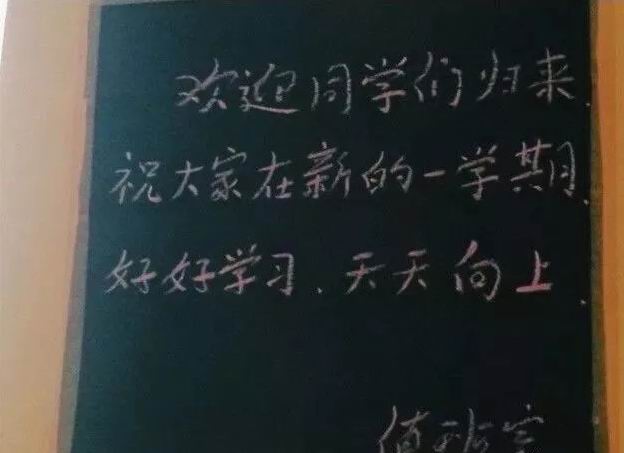 欢迎同学们归来.
祝大家在新的一学期.
好好学习.天天向上.
值班室